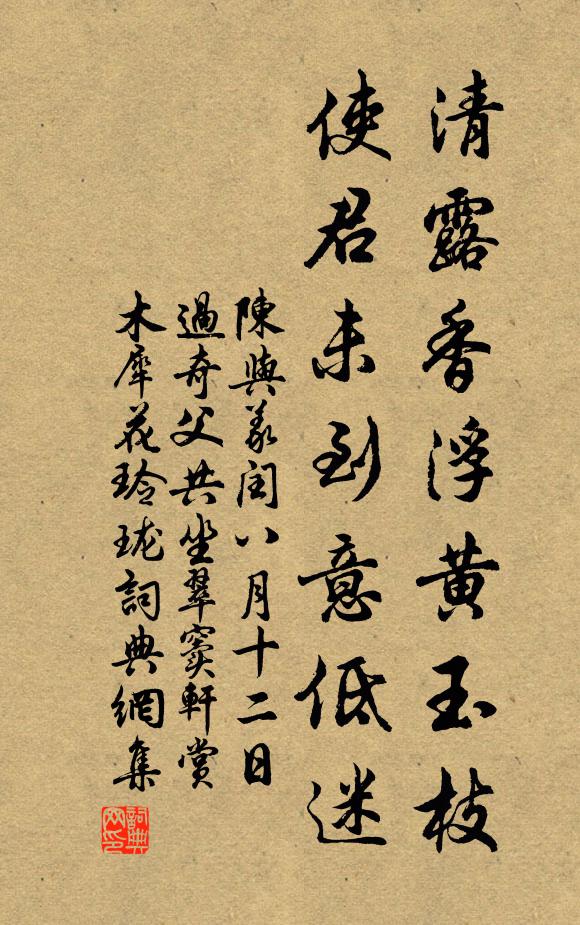 清露香浮黄玉枝
使君未到意低迷
陳與義閏八月十二日
過奇父共坐翠窦軒賞
木犀花玲珑詞典網集
詞典网印